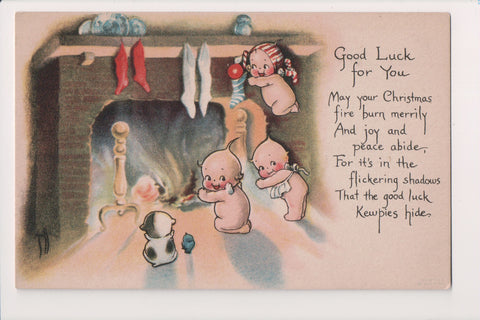 Good Luck
for You
May your Christmas
fire burn merrily
And joy and
peace abide,
For it's in the
flickering shadows
That the good luck
Kewpies hide.